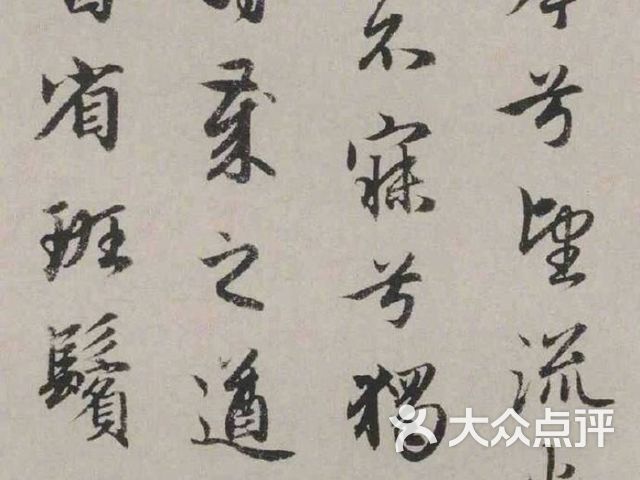 兮望流
不寐兮獨
歲之遒
省班鬢
大众点评